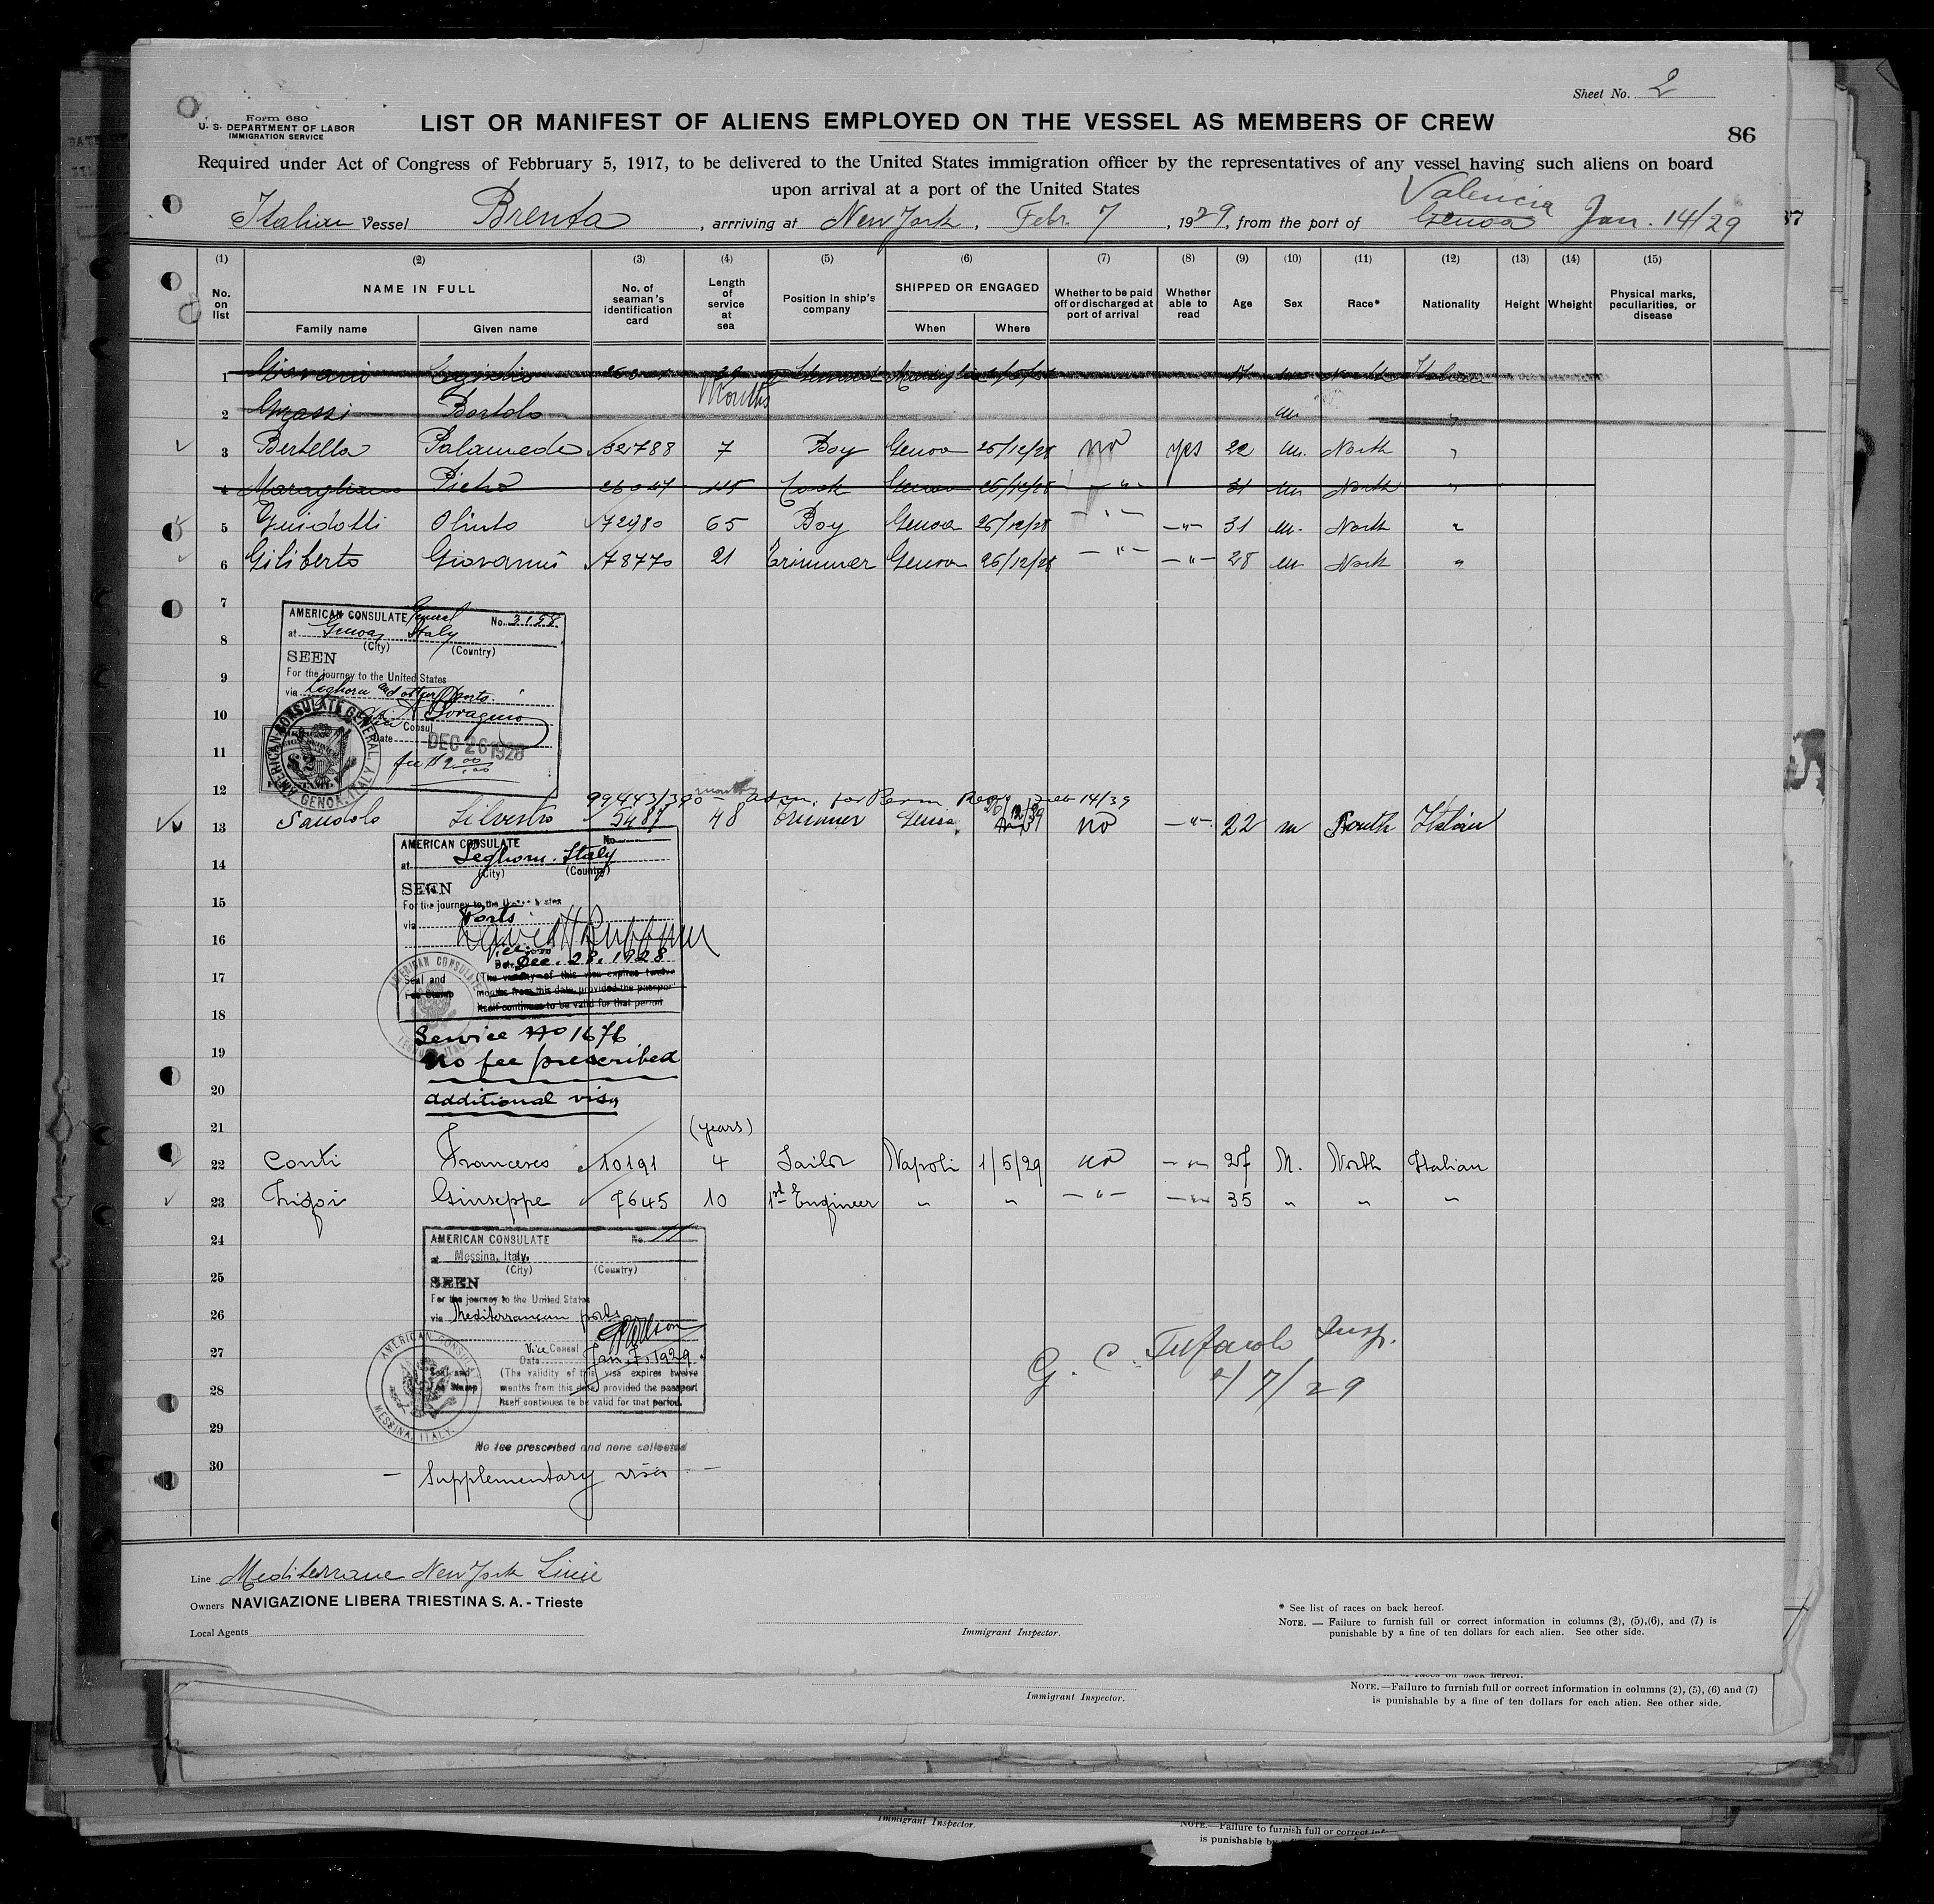 Sheet No. 2
Form 680
U. S. DEPARTMENT OF LABOR
IMMIGRATION SERVICE
LIST OR MANIFEST OF ALIENS EMPLOYED ON THE VESSEL AS MEMBERS OF CREW
86
Required under Act of Congress of Febbruary 5, 1917, to be delivered to the United States immigration officer by the representatives of any vessel having such aliens on board
upon arrival at a port of the United States
Valencia
Italian Vessel Brenta, arrriving at New York, Febr. 7, 1929, from the port of Genoa Jan. 14/29
37
(1) (2) (3) (4) (5) (6) (7) (8) (9) (10) (11) (12) (13) (14) (15)
No. on list
NAME IN FULL
Family name
Given name
No. of seaman's identification card
Length of service at sea
Position in ship's company
SHIPPED OR ENGAGED
When
Where
Whether to be paid off or discharged at port of arrival
Whether able to read
Age
Sex
Race*
Nationality
Height
Wheight
Physical marks, peculiarities, or disease
1 Giovanni Italian
Months
2 Grassi Bortolo m "
3 Bertella Palamede 52788 7 Boy Genoa 26/12/28 no yes 22 m. North "
4 Maragliano Pietro 26047 115 Cook Genoa 26/12/28 — " — 31 m North "
5 Guidotti Olinto 72980 65 Boy Genoa 26/12/28 — " — — " — 31 m. North "
6 Giliberto Giovanni 78770 21 Trimmer Genoa 26/12/28 — " — — " — 28 m North "
7
8
9
10
11
12
AMERICAN CONSULATE General No. 3158
at Genoa, Italy
(City) (Country)
SEEN
For the journey to the United States
via Leghorn and other Ports.
Consul
Date DEC 26 1928
fee $2.00
AMERICAN CONSULATE GENERAL
GENOA, ITALY
99443/390 months adm. for Perm Feb 14/39
13 Sandolo Silvestro 5487 48 Trimmer Genoa no — " — 22 m South Italian
14
15
16
17
18
19
20
21
AMERICAN CONSULATE No
at Leghorn. Italy
(City) (Country)
SEEN
For the journey to the United States
via Ports
Vice
Date Dec. 28. 1928
Seal and
Fee Stamp
(The validity of this visa expires twelve
months from this date, provided the passport
itself continues to be valid for that period
AMERICAN CONSULATE
LEGHORN, ITALY
Service No 1676
No fee prescribed
additional visa
(years)
22 Conti Francesco 10191 4 Sailor Napoli 1/5/29 no — " — 27 M. North Italian
23 Giuseppe 7645 10 1st Engineer " " — " — — " — 35 " " "
24
25
26
27
28
29
30
AMERICAN CONSULATE No. 11
at Messina, Italy.
(City) (Country)
SEEN
For the journey to the United States
via Mediterranean ports
Vice Consul
Date Jan. 7. 1929.
Seal and
Fee Stamp
(The validity of this visa expires twelve
months from this date, provided the passport
itself continues to be valid for that period.
AMERICAN CONSULATE
MESSINA, ITALY.
No fee prescribed and none collected
— Supplementary visa —
G. C. Tufarolo Insp.
2/7/29
Line Mediterrane New York Linie
Owners NAVIGAZIONE LIBERA TRIESTINA S. A. - Trieste
Local Agents
Immigrant Inspector.
* See list of races on back hereof.
NOTE. — Failure to furnish full or correct information in columns (2), (5),(6), and (7) is
punishable by a fine of ten dollars for each alien. See other side.
Immigrant Inspector.
NOTE.—Failure to furnish full or correct information in columns (2), (5), (6) and (7)
is punishable by a fine of ten dollars for each alien. See other side.
Immigrant Inspector.
NOTE.—Failure to furnish full or correct
is punishable by